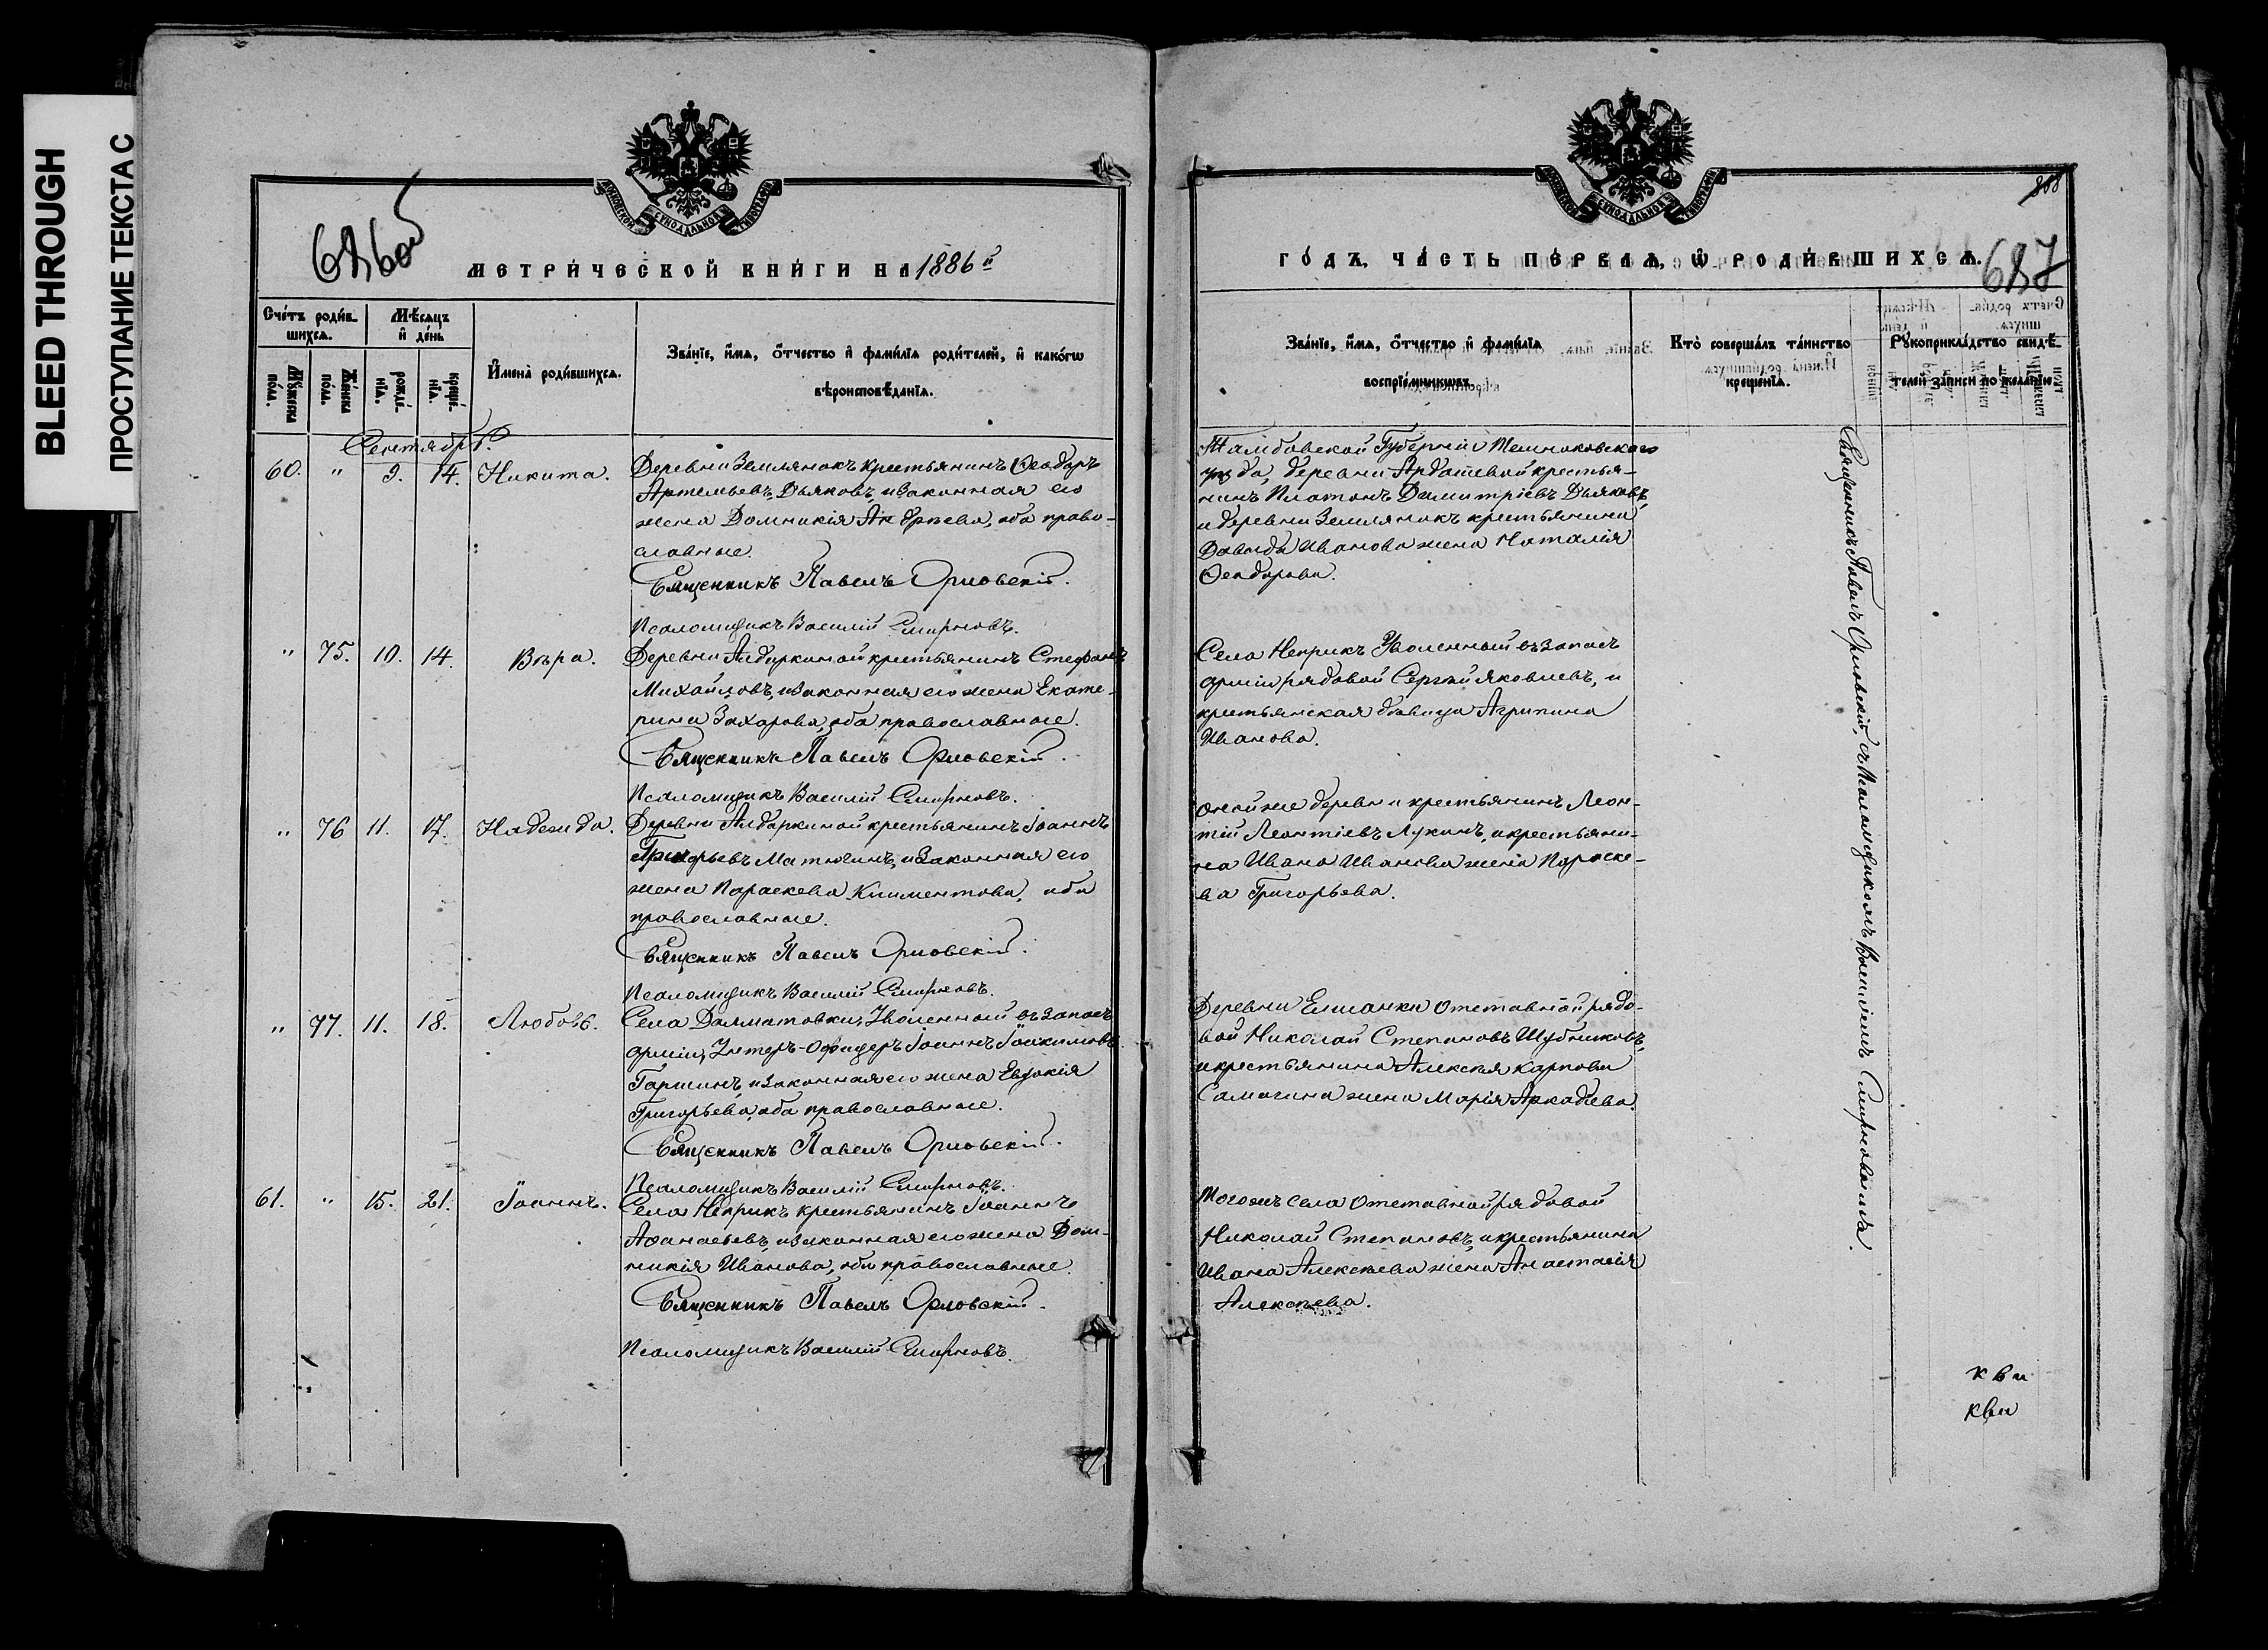 BLEED THROUGH
ПРОСТУПАНИЕ ТЕКСТА С
686об
МЕТРИЧЕСКОЙ КНИГИ НА 1886й
Счетъ родив-
шихся.
Мѣсяцъ
и день
Мужеска
пола.
Женска
пола.
рожде-
нія.
креще-
нія.
Имена родившихся.
Званіе, имя, отчество и фамилія родителей, и какогѡ
вѣроисповѣданія.
Сентябрь.
60. " 9. 14. Никита.
Деревни Землянокъ крестьянинъ Ѳеодоръ
Артемьевъ Дьяковъ, и законная его
жена Домникія Андреева, оба право-
славные.
Священникъ Павелъ Орловскій.
Псаломщикъ Василій Смирновъ.
" 75. 10. 14. Вѣра.
Деревни Алдаркиной крестьянинъ Стефанъ
Михайловъ, и законная его жена Екате-
рина Захарова, оба православные.
Священникъ Павелъ Орловскій.
Псаломщикъ Василій Смирновъ.
" 76 11. 17. Надежда.
Деревни Алдаркиной крестьянинъ Іоаннъ
Григорьевъ Матючинъ, и законная его
жена Параскева Климентова, оба
православные.
Священникъ Павелъ Орловскій.
Псаломщикъ Василій Смирновъ.
" 77. 11. 18. Любовь.
Села Далматовки, Уволенный въ запасъ
арміи, Унтеръ-Офицеръ Іоаннъ Іоакимовъ
Гаршинъ, и законная его жена Евдокія
Григорьева, оба православные.
Священникъ Павелъ Орловскій.
Псаломщикъ Василій Смирновъ.
61. " 15. 21. Іоаннъ.
Села Неприкъ крестьянинъ Іоаннъ
Аѳанасьевъ, и законная его жена Дом-
никія Иванова, оба православные.
Священникъ Павелъ Орловскій.
Псаломщикъ Василій Смирновъ.
888
687
ГОДЪ, ЧАСТЬ ПЕРВАЯ, Ѡ РОДИВШИХСЯ.
Званіе, имя, отчество и фамилія
воспріемниковъ.
Кто совершалъ таинство
крещенія.
Рукоприкладство свидѣ-
телей записи по желанію
Тамбовской Губерніи Темниковскаго
уѣзда, деревни Ардашевой крестья-
нинъ Платонъ Димитріевъ Дьяковъ,
и деревни Землянокъ крестьянина
Давида Иванова жена Наталія
Ѳеодорова.
Села Неприкъ Уволенный въ запасъ
арміи рядовой Сергѣй Яковлевъ, и
крестьянская дѣвица Агрипина
Иванова.
Оной же деревни крестьянинъ Леон-
тій Леонтіевъ Лукинъ, и крестьяни-
на Ивана Иванова жена Параске-
ва Григорьева.
Деревни Елшанки Отставной рядо-
вой Николай Степановъ Шубниковъ,
и крестьянина Алексѣя Карпова
Самагина жена Марія Аркадіева.
Тогожъ села Отставной рядовой
Николай Степановъ, и крестьянина
Ивана Алексѣева жена Анастасія
Алексѣева.
Священникъ Павелъ Орловскій, съ Псаломщикомъ Василіемъ Смирновымъ.